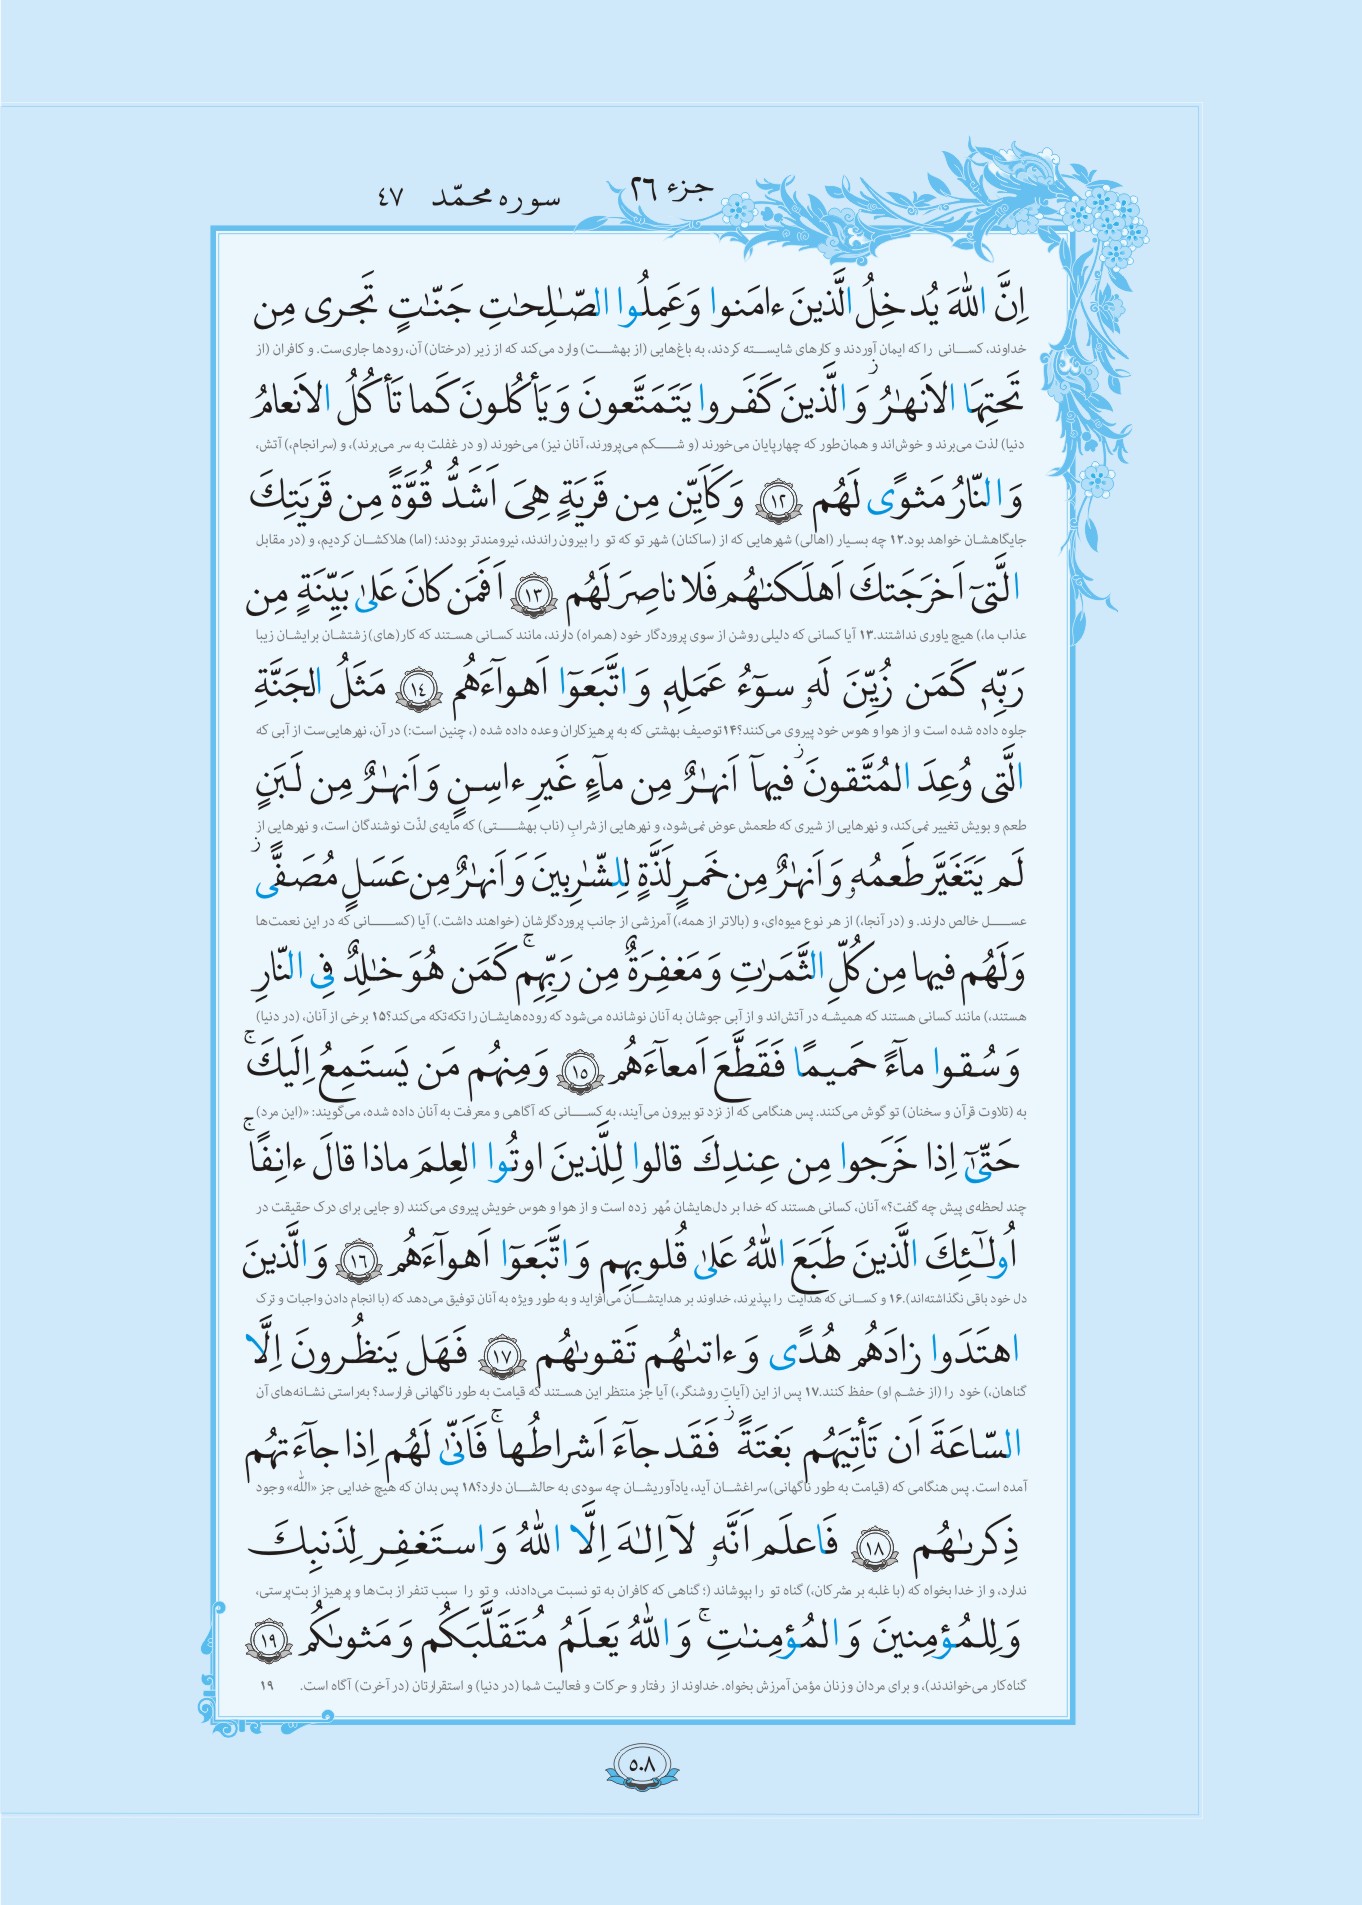 جزء ٢٦
سوره محمّد ٤٧
اِنَّ اللّٰهَ يُدخِلُ الَّذينَ ءامَنوا وَ عَمِلُوا الصّٰلِحٰتِ جَنّٰتٍ تَجرى مِن
خداوند، کسانی را که ایمان آوردند و کارهای شایسته کردند، به باغ‌هایی (از بهشت) وارد می‌کند که از زیر (درختان) آن، رودها جاری‌ست. و کافران (از
تَحتِهَا الاَنهٰرُ ۖ وَ الَّذينَ كَفَروا يَتَمَتَّعونَ وَ يَأكُلونَ كَما تَأكُلُ الاَنعامُ
دنیا) لذت می‌برند و خوش‌اند و همان‌طور که چهارپایان می‌خورند (و شکم می‌پرورند، آنان نیز) می‌خورند (و در غفلت به سر می‌برند)، و (سرانجام،) آتش،
وَ النّارُ مَثوًى لَهُم ١٢ وَ كَاَيِّن مِن قَريَةٍ هِىَ اَشَدُّ قُوَّةً مِن قَريَتِكَ
جایگاهشان خواهد بود.۱۲ چه بسیار (اهالی) شهرهایی که از (ساکنان) شهر تو که تو را بیرون راندند، نیرومندتر بودند؛ (اما) هلاکشان کردیم، و (در مقابل
الَّتىٓ اَخرَجَتكَ اَهلَكنٰهُم فَلا ناصِرَ لَهُم ١٣ اَفَمَن كانَ عَلىٰ بَيِّنَةٍ مِن
عذاب ما،) هیچ یاوری نداشتند.۱۳ آیا کسانی که دلیلی روشن از سوی پروردگار خود (همراه) دارند، مانند کسانی هستند که کار(های) زشتشان برایشان زیبا
رَبِّهٖ كَمَن زُيِّنَ لَهٗ سوٓءُ عَمَلِهٖ وَ اتَّبَعوٓا اَهوآءَهُم ١٤ مَثَلُ الجَنَّةِ
جلوه داده شده است و از هوا و هوس خود پیروی می‌کنند؟۱۴ توصیف بهشتی که به پرهیزکاران وعده داده شده (، چنین است:) در آن، نهرهایی‌ست از آبی که
الَّتى وُعِدَ المُتَّقونَ ۖ فيهآ اَنهٰرٌ مِن مآءٍ غَيرِ ءاسِنٍ وَ اَنهٰرٌ مِن لَبَنٍ
طعم و بویش تغییر نمی‌کند، و نهرهایی از شیری که طعمش عوض نمی‌شود، و نهرهایی از شرابِ (ناب بهشتی) که مایه‌ی لذّت نوشندگان است، و نهرهایی از
لَم يَتَغَيَّر طَعمُهٗ وَ اَنهٰرٌ مِن خَمرٍ لَذَّةٍ لِلشّٰرِبينَ وَ اَنهٰرٌ مِن عَسَلٍ مُصَفًّى ۖ
عسل خالص دارند. و (در آنجا،) از هر نوع میوه‌ای، و (بالاتر از همه،) آمرزشی از جانب پروردگارشان (خواهند داشت.) آیا (کسانی که در این نعمت‌ها
وَ لَهُم فيها مِن كُلِّ الثَّمَرٰتِ وَ مَغفِرَةٌ مِن رَبِّهِم ۚ كَمَن هُوَ خٰلِدٌ فِى النّارِ
هستند،) مانند کسانی هستند که همیشه در آتش‌اند و از آبی جوشان به آنان نوشانده می‌شود که روده‌هایشان را تکه‌تکه می‌کند؟۱۵ برخی از آنان، (در دنیا)
وَ سُقوا مآءً حَميمًا فَقَطَّعَ اَمعآءَهُم ١٥ وَ مِنهُم مَن يَستَمِعُ اِلَيكَ ۚ
به (تلاوت قرآن و سخنان) تو گوش می‌کنند. پس هنگامی که از نزد تو بیرون می‌آیند، به کسانی که آگاهی و معرفت به آنان داده شده، می‌گویند: «(این مرد)
حَتّىٰٓ اِذا خَرَجوا مِن عِندِكَ قالوا لِلَّذينَ اوتُوا العِلمَ ماذا قالَ ءانِفًا ۚ
چند لحظه‌ی پیش چه گفت؟» آنان، کسانی هستند که خدا بر دل‌هایشان مُهر زده است و از هوا و هوس خویش پیروی می‌کنند (و جایی برای درک حقیقت در
اُولٰٓئِكَ الَّذينَ طَبَعَ اللّٰهُ عَلىٰ قُلوبِهِم وَ اتَّبَعوٓا اَهوآءَهُم ١٦ وَ الَّذينَ
دل خود باقی نگذاشته‌اند).۱۶ و کسانی که هدایت را بپذیرند، خداوند بر هدایتشان می‌افزاید و به طور ویژه به آنان توفیق می‌دهد که (با انجام دادن واجبات و ترک
اهتَدَوا زادَهُم هُدًى وَ ءاتىٰهُم تَقوىٰهُم ١٧ فَهَل يَنظُرونَ اِلَّا
گناهان،) خود را (از خشم او) حفظ کنند.۱۷ پس از این (آیاتِ روشنگر،) آیا جز منتظر این هستند که قیامت به طور ناگهانی فرارسد؟ به‌راستی نشانه‌های آن
السّاعَةَ اَن تَأتِيَهُم بَغتَةً ۖ فَقَد جآءَ اَشراطُها ۚ فَاَنّىٰ لَهُم اِذا جآءَتهُم
آمده است. پس هنگامی که (قیامت به طور ناگهانی) سراغشان آید، یادآوریشان چه سودی به حالشان دارد؟۱۸ پس بدان که هیچ خدایی جز «اللّٰه» وجود
ذِكرىٰهُم ١٨ فَاعلَم اَنَّهٗ لآ اِلٰهَ اِلَّا اللّٰهُ وَ استَغفِر لِذَنبِكَ
ندارد، و از خدا بخواه که (با غلبه بر مشرکان،) گناه تو را بپوشاند (؛ گناهی که کافران به تو نسبت می‌دادند، و تو را سبب تنفر از بت‌ها و پرهیز از بت‌پرستی،
وَ لِلمُؤمِنينَ وَ المُؤمِنٰتِ ۚ وَ اللّٰهُ يَعلَمُ مُتَقَلَّبَكُم وَ مَثوىٰكُم ١٩
گناه‌کار می‌خواندند)، و برای مردان و زنان مؤمن آمرزش بخواه. خداوند از رفتار و حرکات و فعالیت شما (در دنیا) و استقرارتان (در آخرت) آگاه است. ۱۹
٥٠٨